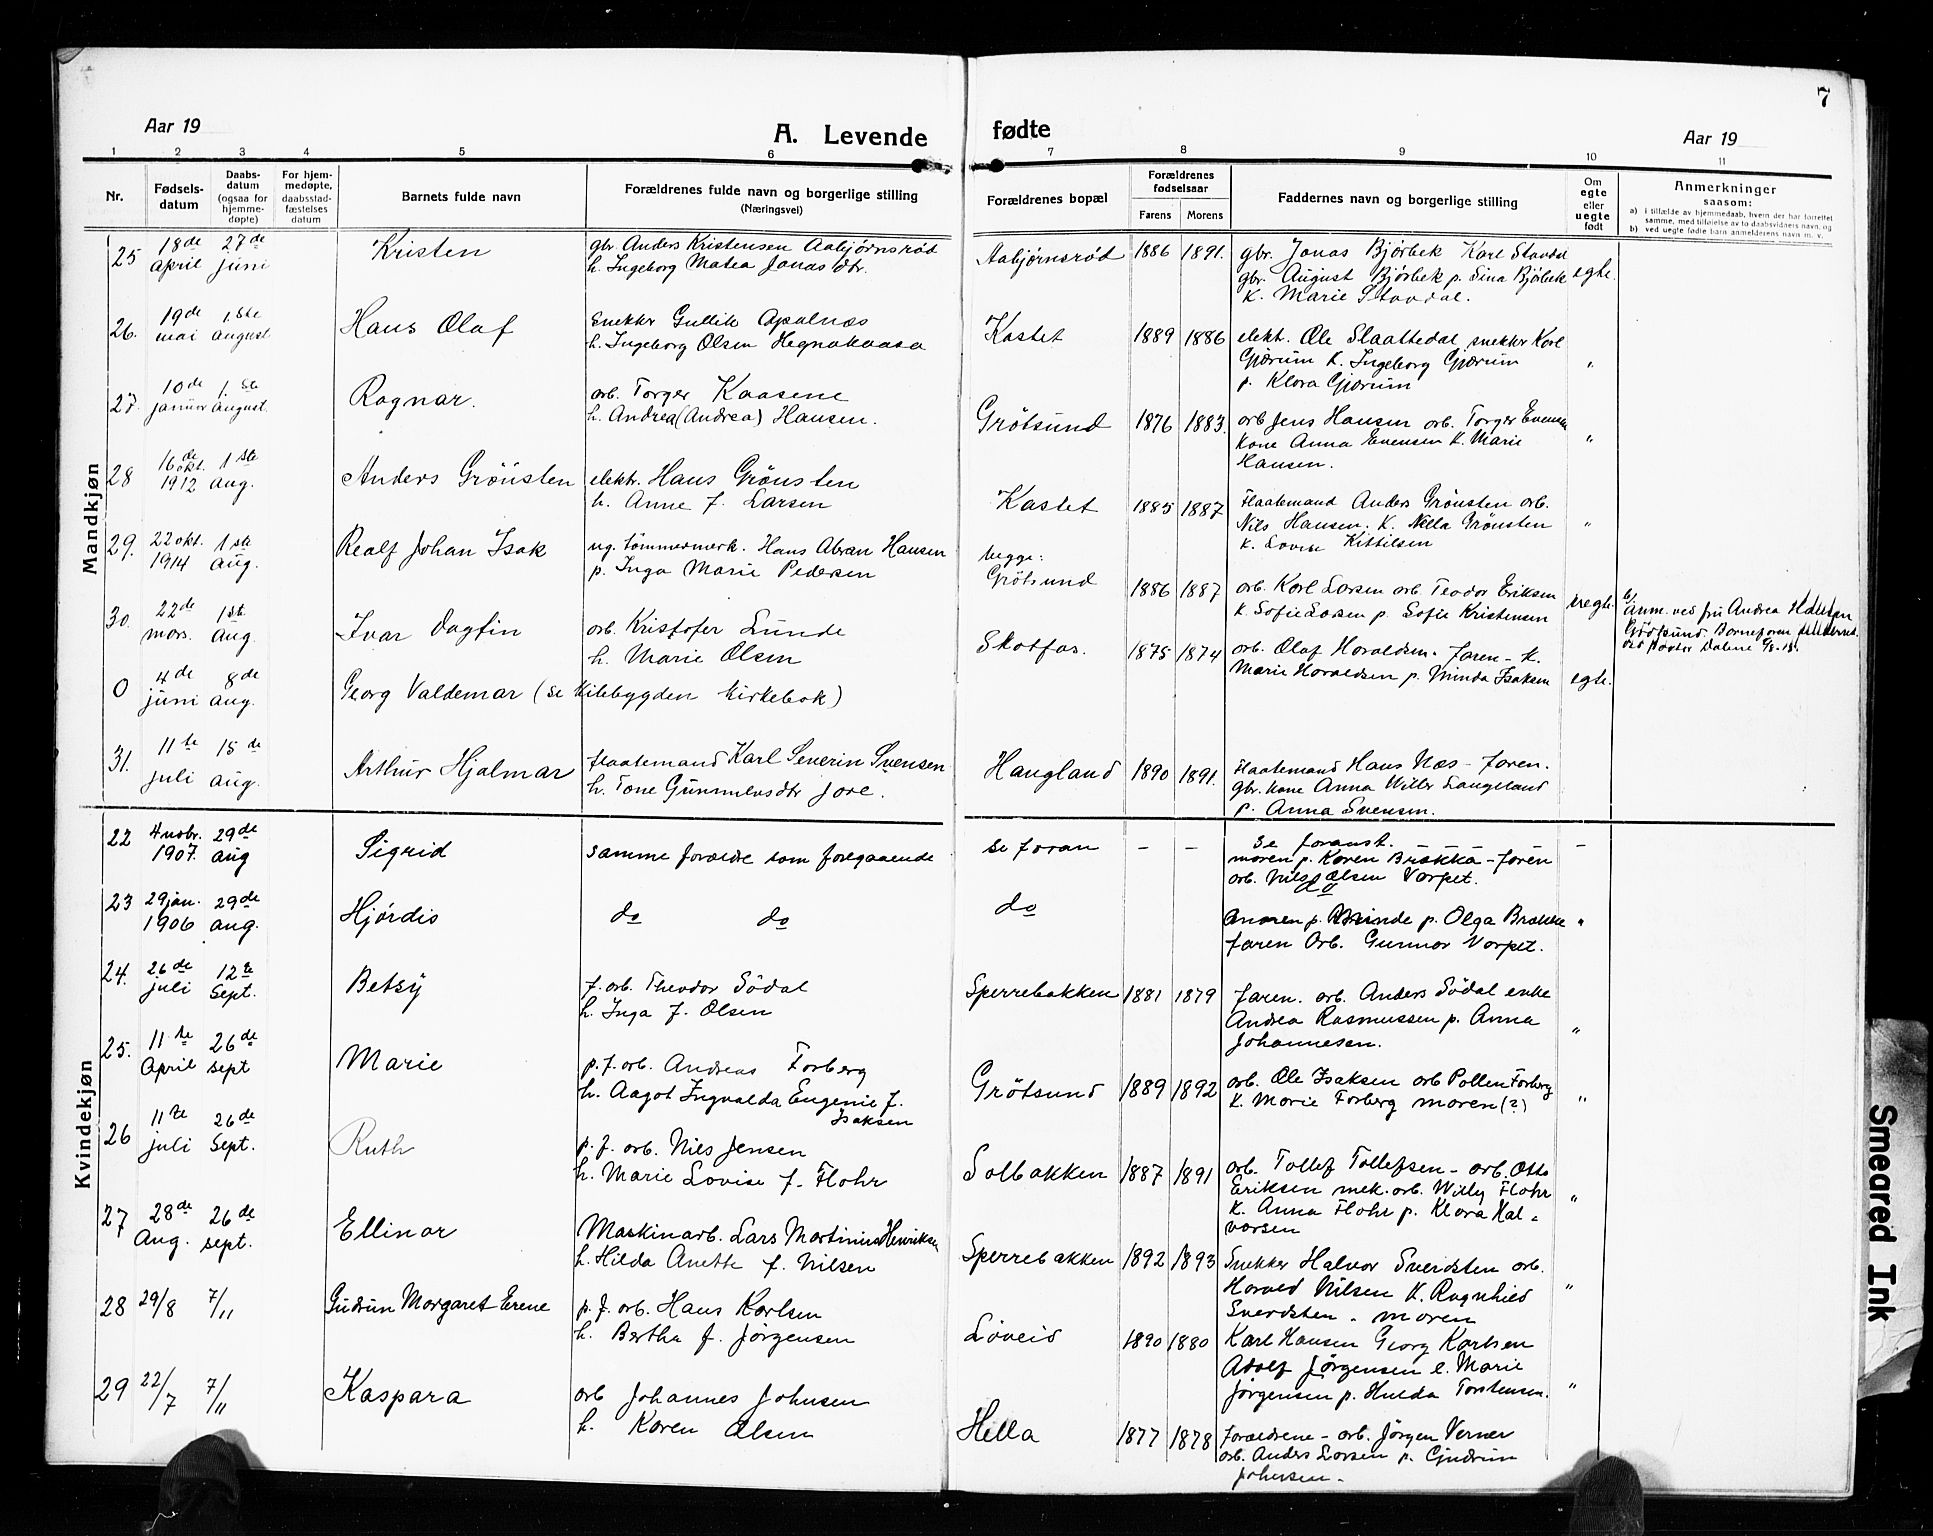 7
Aar 19
A. Levende fødte
Aar 19
1 2 3 4 5 6 7 8 9 10 11
Nr.
Fødsels-
datum
Daabs-
datum
(ogsaa for
hjemme-
døpte)
For hjem-
medøpte,
daabsstad-
fæstelses
datum
Barnets fulde navn
Forældrenes fulde navn og borgerlige stilling
(Næringsvei)
Forældrenes bopæl
Forældrenes
fødselsaar
Farens Morens
Faddernes navn og borgerlige stilling
Om
egte
eller
uegte
født
Anmerkninger
saasom:
a) i tilfælde av hjemmedaab, hvem der har forrettet
samme, med tilføielse av to daabsvidners navn, og
b) ved uegte fødte barn anmelderens navn m. v.
Mandkjøn
25 18de april 27de juni Kristen
gbr. Anders Kristensen Aabjørnsrød
h. Ingeborg Matea Jonasdtr.
Aabjørnsrød 1886 1891.
gbr. Jonas Bjørbek Karl Stavdal
gbr. August Bjørbek p. Sina Bjørbek
k. Marie Stavdal.
egte.
26. 19de mai 1.ste august Hans Olaf
snekker Gullik Apalnæs
h. Ingeborg Olsen Hegnakaasa
Kastet 1889 1886
elekt. Ole Slaattedal, snekker Karl
Gjærum k. Ingeborg Gjærum
p. Klara Gjærum
"
27. 10de januar 1.ste august. Ragnar.
arb. Torger Kaasene
h. Andrea (Andrea) Hansen.
Grøtsund 1876 1883.
arb Jens Hansen arb. Torger Evensen
kone Anna Evensen k. Marie
Hansen.
"
28 16de okt. 1912 1ste aug. Anders Grönsten
elektr. Hans Grönsten
h. Anne f. Larsen
Kastet 1885 1887
Flaatemand Anders Grönsten arb.
Nils Hansen. k. Nella Grönsten
k. Lovise Kittilsen
"
29. 22 okt. 1914 1ste aug. Realf Johan Isak
ug. tömmermerk. Hans Abran Hansen
p. Inga Marie Pedersen
begge:
Grötsund 1886 1887
arb. Karl Larsen arb Teodor Eriksen
k. Sofie Larsen p. Sofie Kristensen
uegte.
b) anm. ved fru Andrea Hansen
Grötsund. Barnefaren
30. 22de mars. 1ste Aug. Ivar Dagfin
arb. Kristofer Lunde
h. Marie Olsen
Skotfos. 1875 1874
arb. Olaf Haraldsen. faren - k.
Marie Haraldsen p. Minda Isaksen
egte.
0 4de juni 8de aug. Georg Valdemar (se Kilebygden kirkebok)
31. 11te juli 15de aug. Arthur Hjalmar
flaatemand Karl Severin Svensen
h. Tone Gunnulvsdtr Jore.
Haugland 1890 1891.
Flaatemand Hans Næs - faren.
gbr. kone Anna Langeland
p. Anna Svensen.
Kvindekjøn
22 4 novbr. 1907. 29de aug Sigrid
samme forældre som foregaaende
se foran - -
se foranst. - - -
moren p. Karen Brakka - faren
arb. Nils Olsen Vorpet.
-
23 29 jan. 1906 29de aug. Hjördis
do do
do
do
moren p. p. Olga Brakke
faren Arb. Gunnar Vorpet.
"
24. 26de juli 12te Sept. Betsy
f. arb. Theodor Södal
h. Inga f. Olsen
Sperrebakken 1881 1879
faren. arb. Anders Södal enke
Andrea Rasmussen p. Anna
Johannesen.
"
25. 11te April 26de sept Marie
p. f. arb. Andreas Forberg
h. Aagot Ingvalda Eugenie f.
Isaksen
Grötsund 1889 1892
arb. Ole Isaksen arb Pollen Forberg
k. Marie Forberg moren (?)
"
26 11te juli 26de Sept. Ruth
p. f. arb. Nils Jensen
h. Marie Lovise f. Flohr
Solbakken 1887 1891
arb. Tollef Tollefsen - arb. Otto
Eriksen mek. arb. Willy Flohr
k. Anna Flohr p. Klara Hal-
vorsen
"
27 28de Aug. 26de sept. Ellinor
Maskinarb. Lars Martinius Henriksen
h. Hilda Anette f. Nilsen
Sperrebakken 1892 1893
Snekker Halvor Sverdsten arb.
Harald Nilsen k. Ragnhild
Sverdsten - moren
"
28 29/8 7/11 Gudrun Margaret Erene
p. f. arb. Hans Karlsen
h. Bertha f. Jørgensen
Løveid 1890 1880
Karl Hansen Georg Karlsen
Adolf Jørgensen e. Marie
Jørgensen p. Hulda Torstensen.
"
29 22/7 7/11 Kaspara
arb Johannes Johnsen
h. Karen Olsen
Hella 1877 1878
Forældrene - arb. Jørgen Verner
arb. Anders Larsen p. Gjudrun
Johnsen.
Smeared Ink